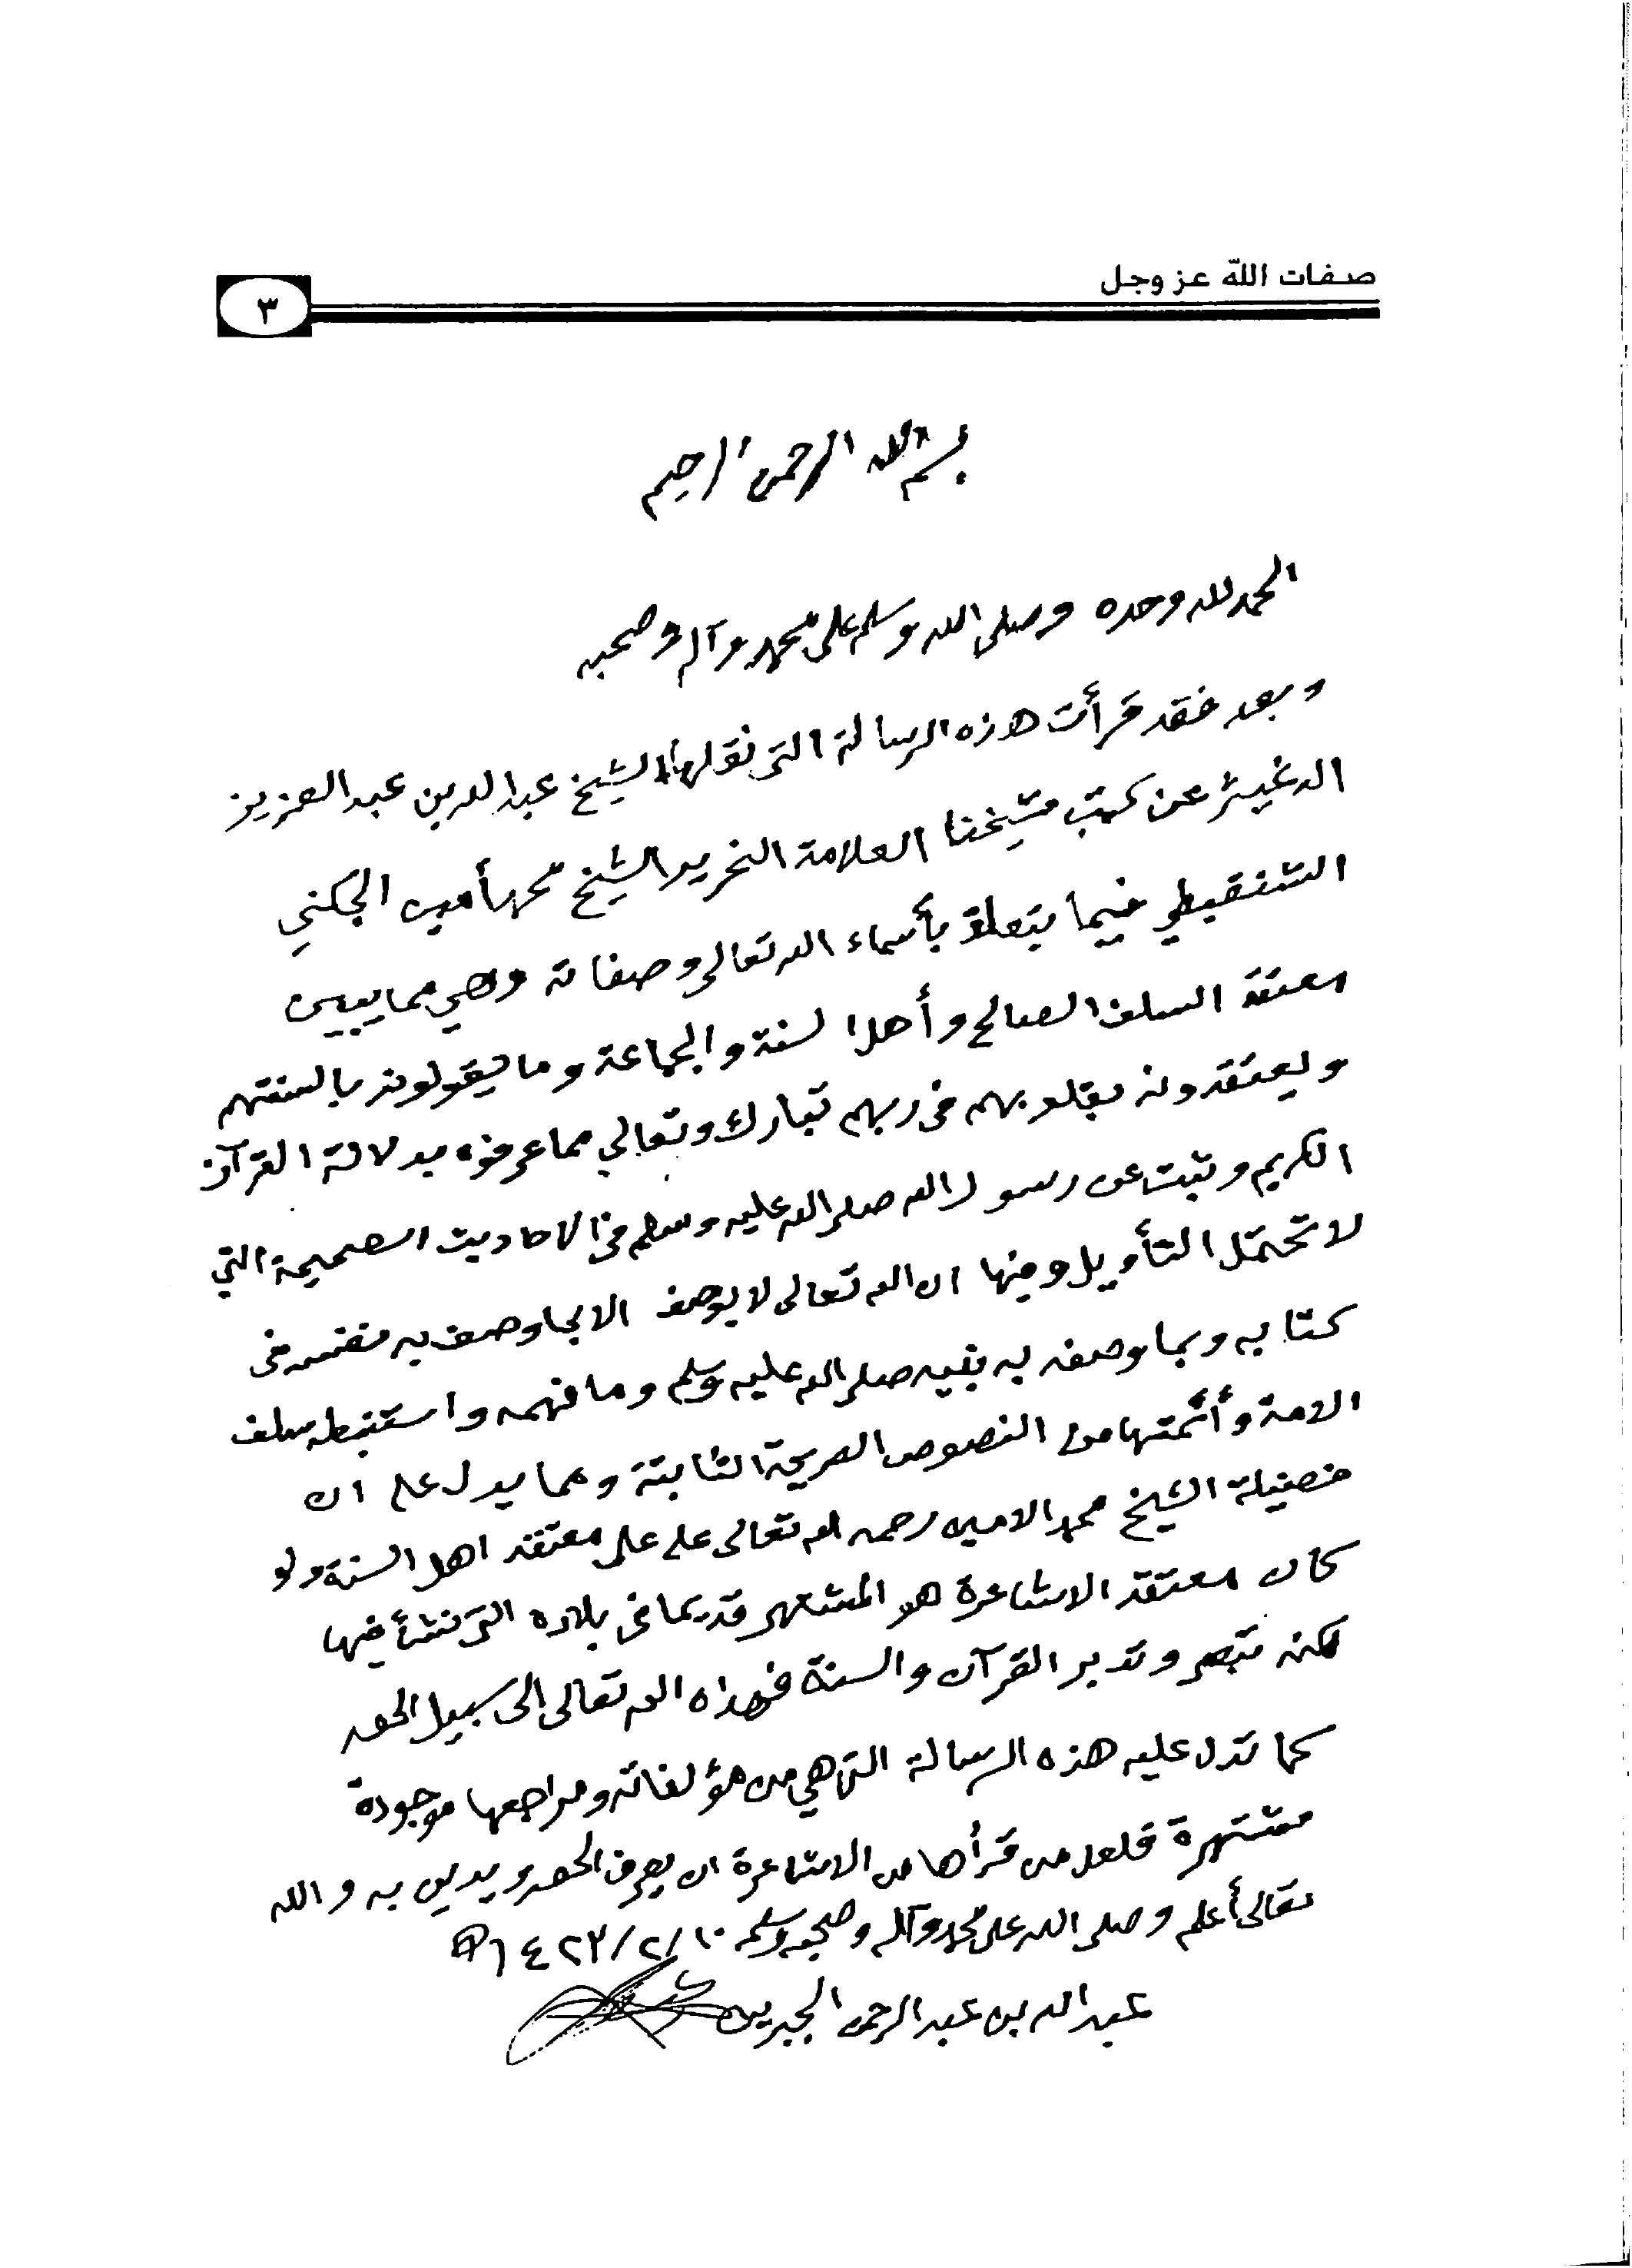 صفات الله عز وجل
٣
بسم الله الرحمن الرحيم
الحمد لله وحده وصلى الله وسلم على محمد وآله وصحبه
وبعد فقد قرأت هذه الرسالة التي نقلها الشيخ عبد الله بن عبد العزيز
الدغيثر عن كتب شيخنا العلامة النحرير الشيخ محمد أمين الجكني
الشنقيطي فيما يتعلق بأسماء الله تعالى وصفاته وهي مما يبين
معتقد السلف الصالح وأهل السنة والجماعة وما يقولونه بألسنتهم
ويعتقدونه بقلوبهم في ربهم تبارك وتعالى مما عرفوه بدلالة القرآن
الكريم وثبت عن رسول الله صلى الله عليه وسلم في الاحاديث الصحيحة التي
لا تحتمل التأويل ومنها ان الله تعالى لا يوصف الا بما وصف به نفسه في
كتابه وبما وصفه به نبيه صلى الله عليه وسلم وما فهمه واستنبطه سلف
الامة وأئمتها من النصوص الصريحة الثابتة ومما يدل على ان
فضيلة الشيخ محمد الامين رحمه الله تعالى على على معتقد اهل السنة ولو
كان معتقد الاشاعرة هو المشتهر قديما في بلاده التي نشأ فيها
لكنه تبصر وتدبر القرآن والسنة فهداه الله تعالى إلى سبيل الحق
كما تدل عليه هذه الرسالة التي هي من مؤلفاته ومراجعها موجودة
مشتهرة فلعل من قرأها من الاشاعرة ان يعرف الحق ويدين به والله
تعالى أعلم وصلى الله على محمد وآله وصحبه وسلم ١٤٢٣/٢/١٠هـ
عبد الله بن عبد الرحمن الجبرين